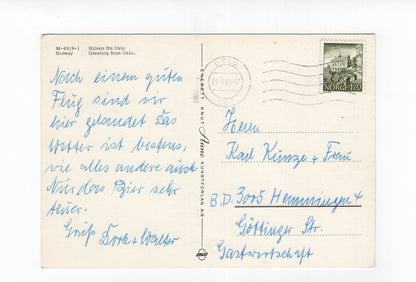 M-4919-1 Hilsen fra Oslo
Norway Greeting from Oslo.
Nach einem guten
Flug sind wir
hier gelandet Das
Wetter ist bestens,
wie alles andere auch
Nur das Bier sehr
teuer.
Gruß Dora + Walter
ENERETT KNUT Aune KUNSTFORLAG AS
OSLO
NORGE 170
Herrn
Karl Kunze + Frau
B.D. 3005 Hemmingen 4
Göttinger Str.
Gastwirtschaft